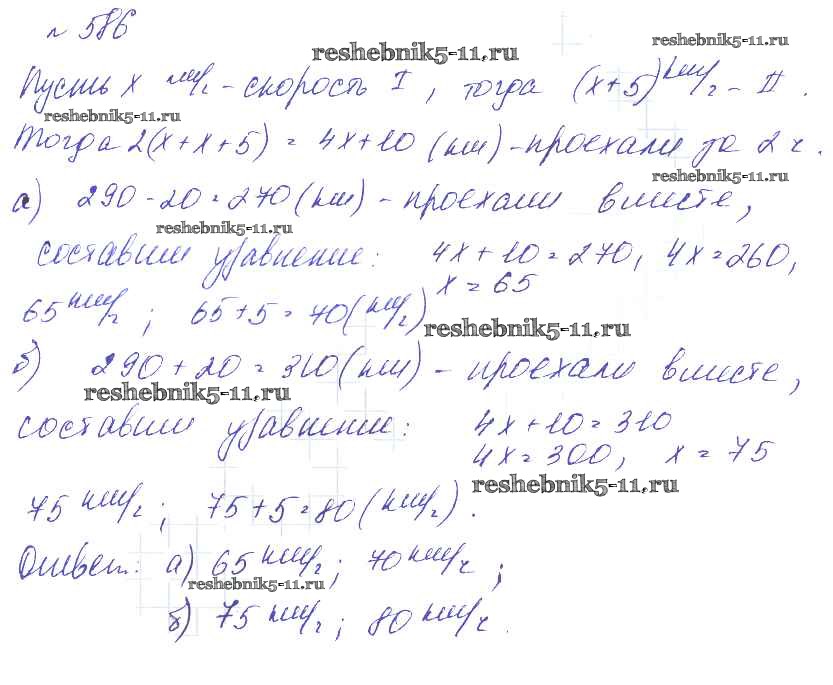 № 586
reshebnik5-11.ru
reshebnik5-11.ru
Пусть x км/ч - скорость I, тогда (x+5) км/ч - II.
reshebnik5-11.ru
Тогда 2(x+x+5) = 4x+10 (км) - проехали за 2 ч.
reshebnik5-11.ru
а) 290-20=270 (км) - проехали вместе,
reshebnik5-11.ru
составим уравнение: 4x+10=270, 4x=260,
x=65
65 км/ч; 65+5=70 (км/ч)
reshebnik5-11.ru
б) 290+20=310 (км) - проехали вместе,
reshebnik5-11.ru
составим уравнение: 4x+10=310
4x=300, x=75
reshebnik5-11.ru
75 км/ч; 75+5=80 (км/ч).
Ответ: а) 65 км/ч; 70 км/ч;
reshebnik5-11.ru
б) 75 км/ч; 80 км/ч.